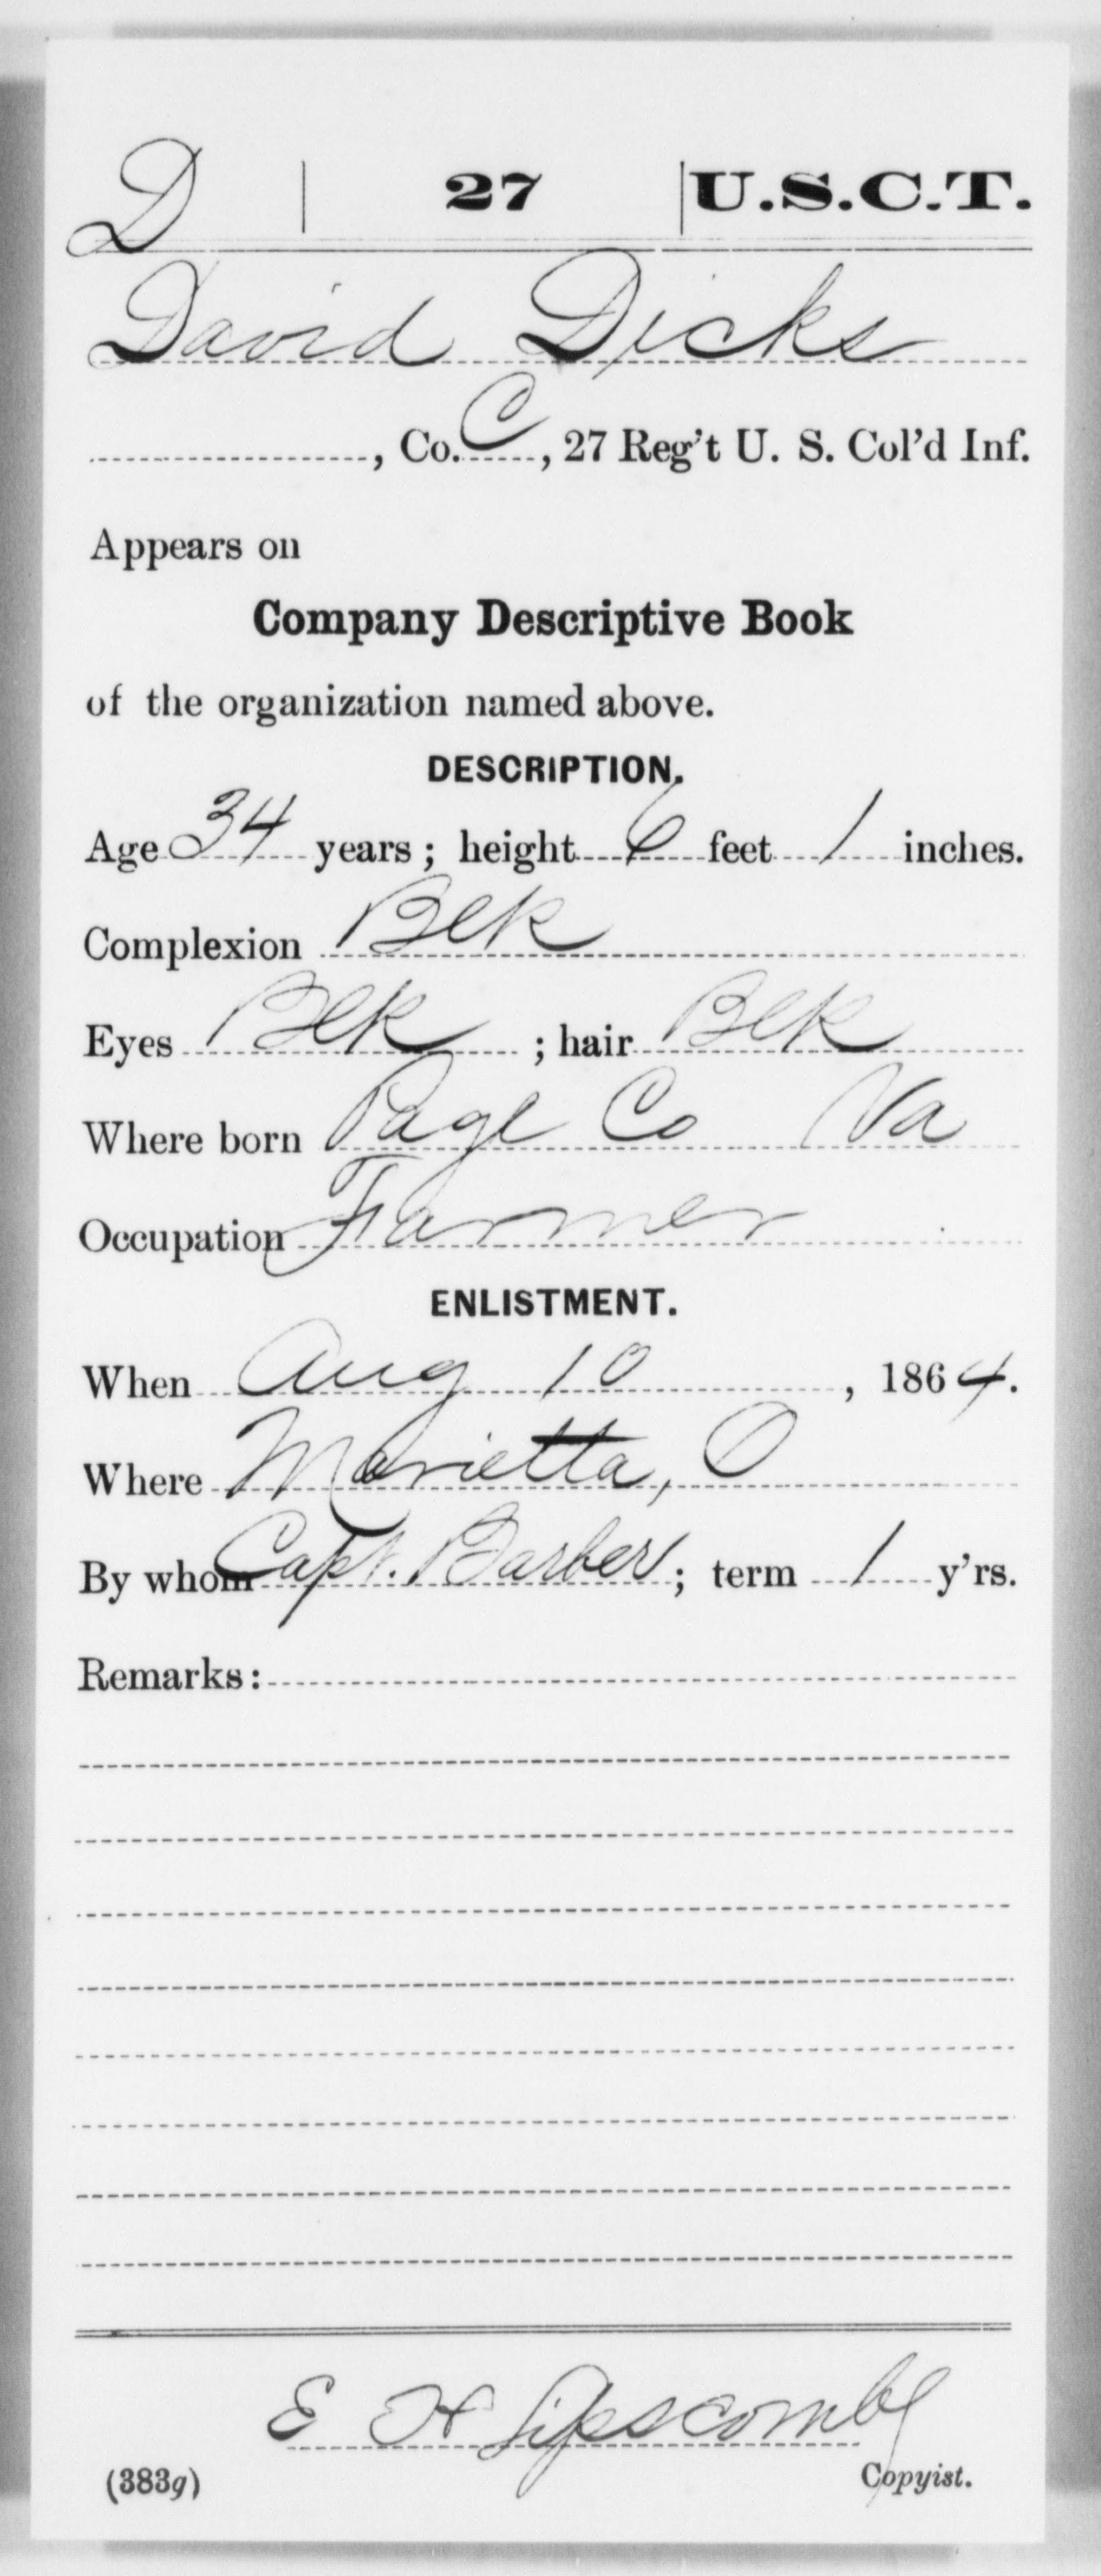 D | 27 | U.S.C.T.
David Dicks
, Co. C, 27 Reg't U. S. Col'd Inf.
Appears on
Company Descriptive Book
of the organization named above.
DESCRIPTION.
Age 34 years; height 6 feet 1 inches.
Complexion Blk
Eyes Blk; hair Blk
Where born Page Co Va
Occupation Farmer
ENLISTMENT.
When Aug 10, 1864.
Where Marietta, O
By whom Capt. Barber; term 1 y'rs.
Remarks:
E H Lipscomb
(383g) Copyist.